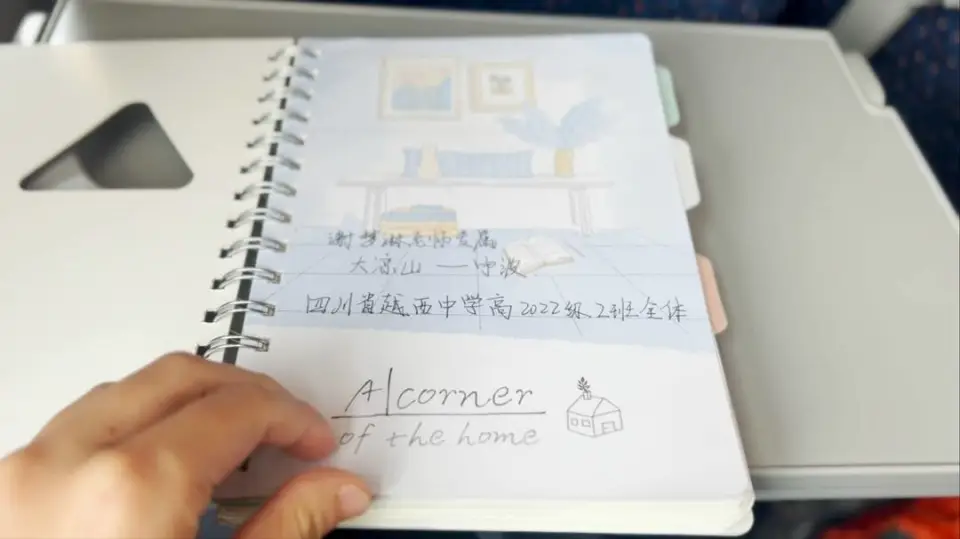 谢梦琳老师专属
大凉山——宁波
四川省越西中学高2022级2班全体
A corner
of the home